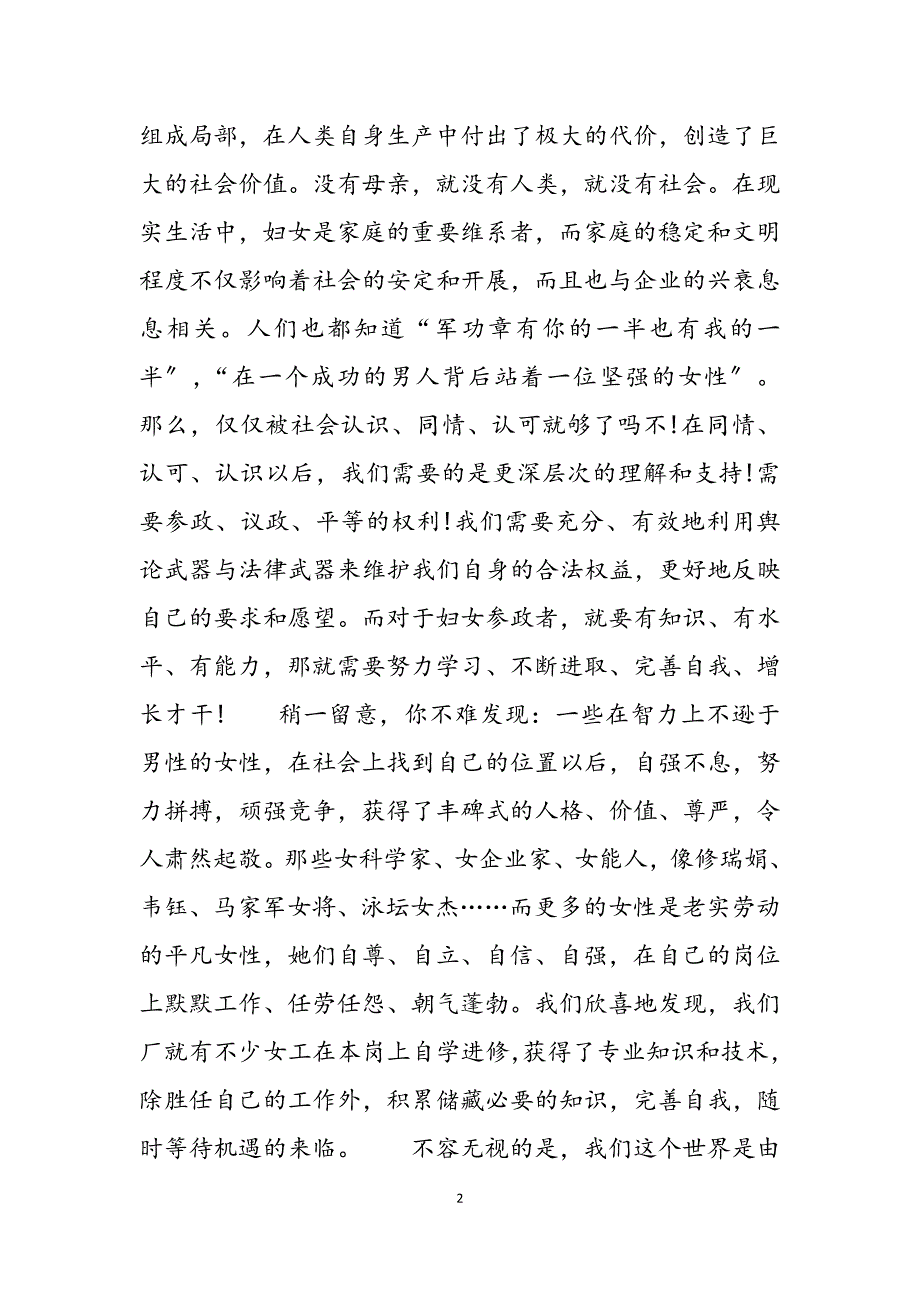 组成局部，在人类自身生产中付出了极大的代价，创造了巨
大的社会价值。没有母亲，就没有人类，就没有社会。在现
实生活中，妇女是家庭的重要维系者，而家庭的稳定和文明
程度不仅影响着社会的安定和开展，而且也与企业的兴衰息
息相关。人们也都知道“军功章有你的一半也有我的一
半〞，“在一个成功的男人背后站着一位坚强的女性〞。
那么，仅仅被社会认识、同情、认可就够了吗不!在同情、
认可、认识以后，我们需要的是更深层次的理解和支持!需
要参政、议政、平等的权利!我们需要充分、有效地利用舆
论武器与法律武器来维护我们自身的合法权益，更好地反映
自己的要求和愿望。而对于妇女参政者，就要有知识、有水
平、有能力，那就需要努力学习、不断进取、完善自我、增
长才干!　　稍一留意，你不难发现：一些在智力上不逊于
男性的女性，在社会上找到自己的位置以后，自强不息，努
力拼搏，顽强竞争，获得了丰碑式的人格、价值、尊严，令
人肃然起敬。那些女科学家、女企业家、女能人，像修瑞娟、
韦钰、马家军女将、泳坛女杰……而更多的女性是老实劳动
的平凡女性，她们自尊、自立、自信、自强，在自己的岗位
上默默工作、任劳任怨、朝气蓬勃。我们欣喜地发现，我们
厂就有不少女工在本岗上自学进修,获得了专业知识和技术，
除胜任自己的工作外，积累储藏必要的知识，完善自我，随
时等待机遇的来临。　　不容无视的是，我们这个世界是由
2